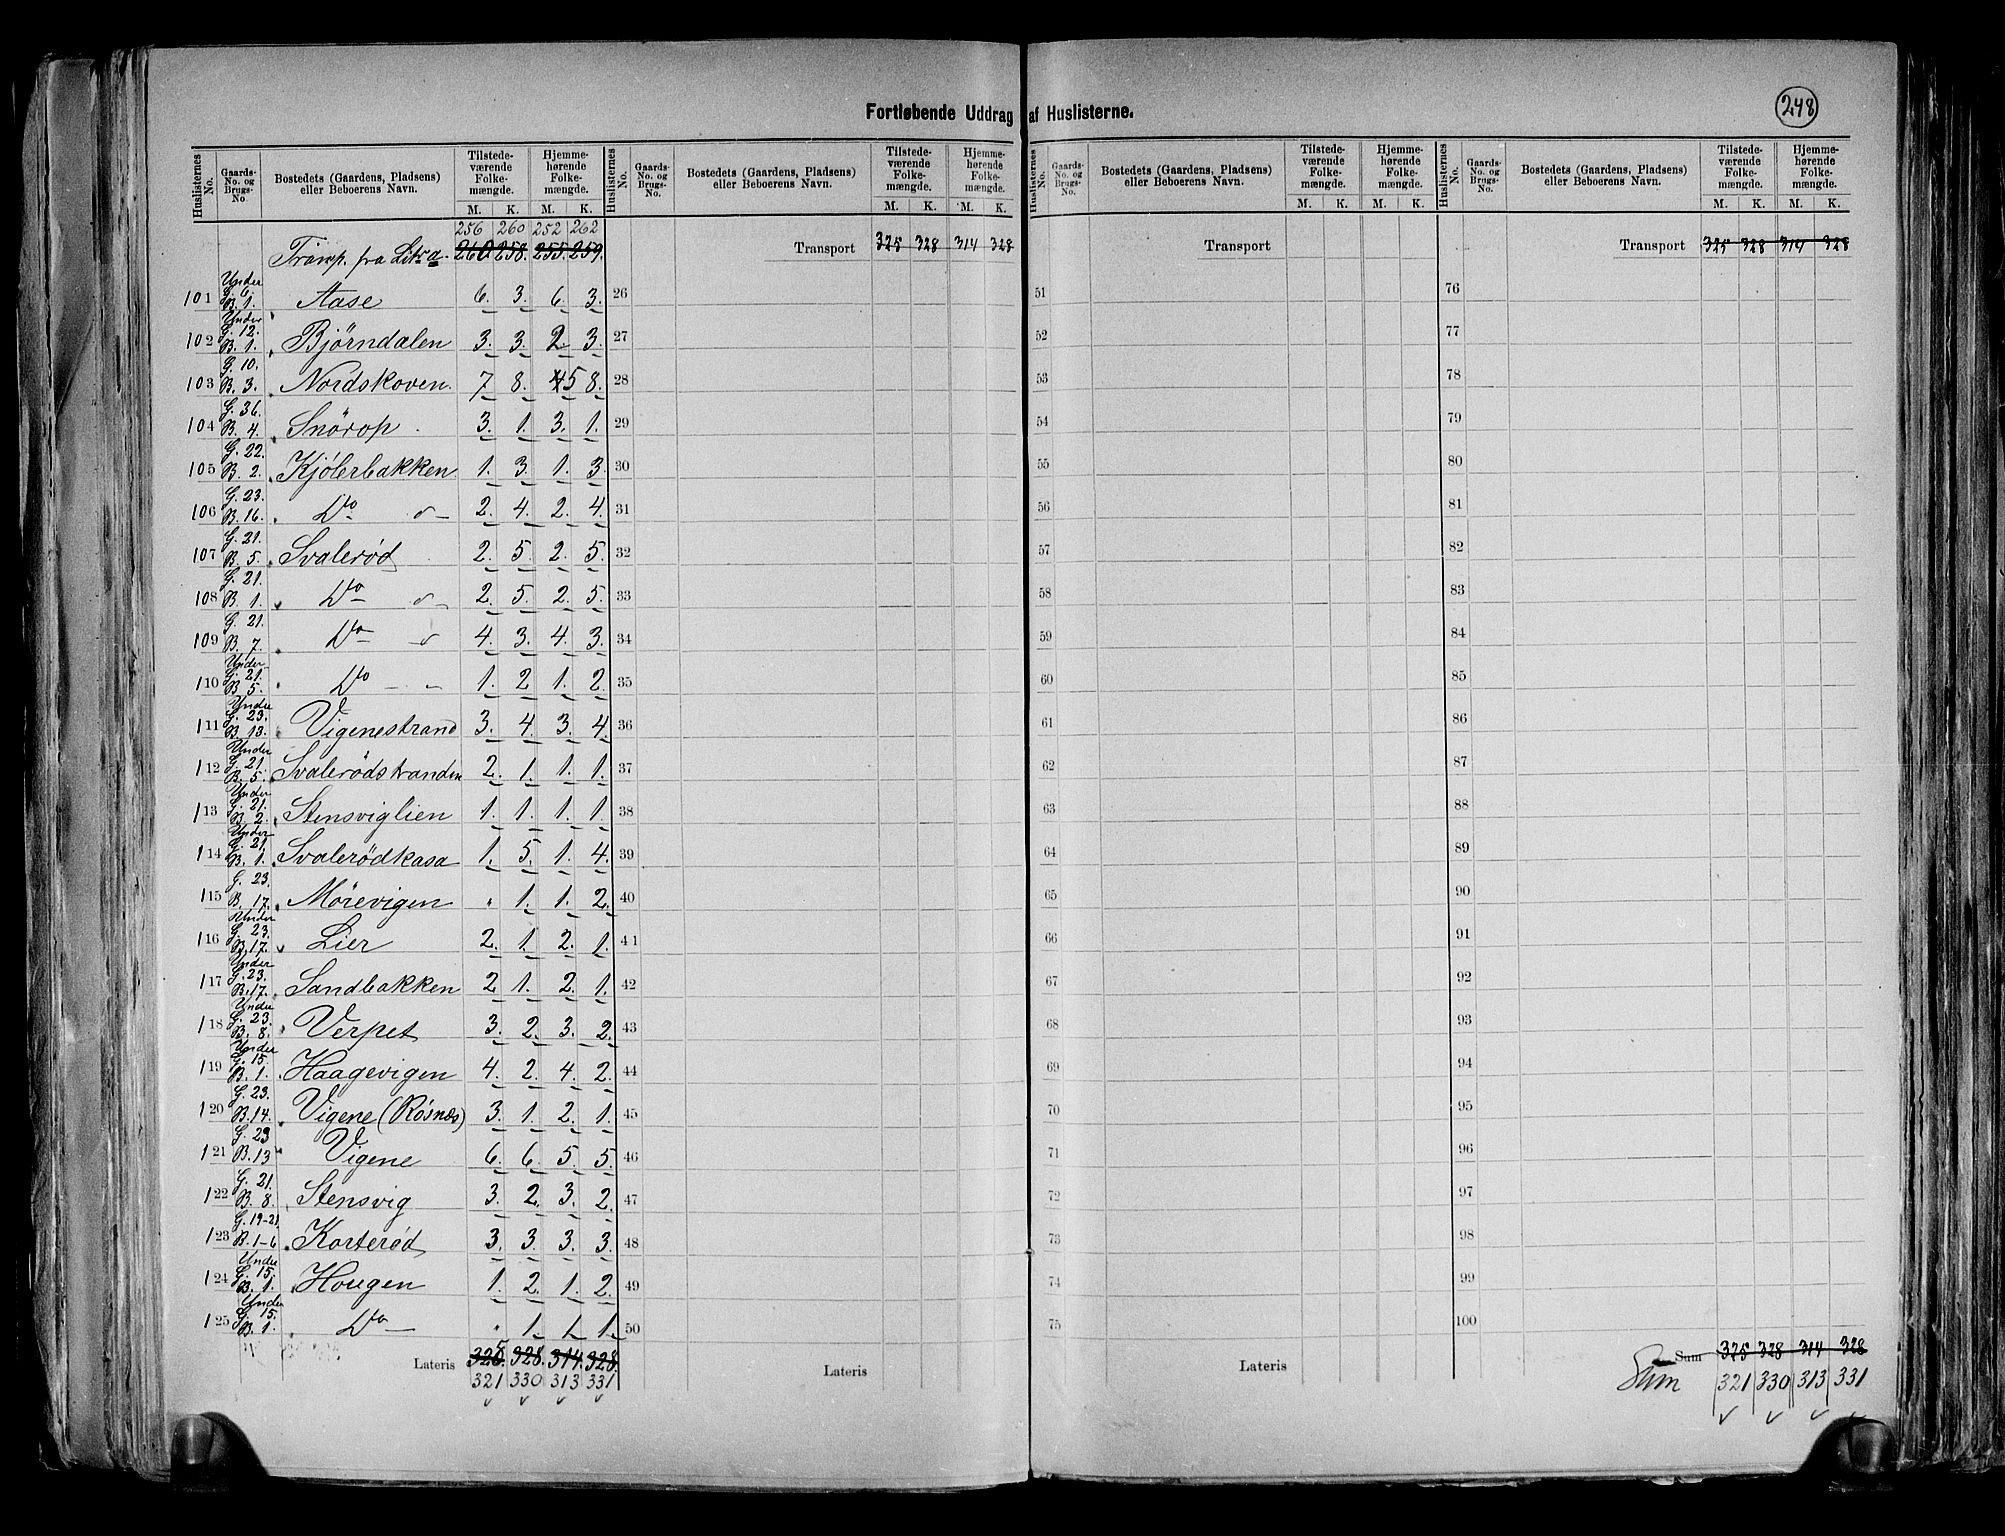 Fortløbende Uddrag af Huslisterne.
248
Huslisternes No. Gaards-No. og Brugs-No. Bostedets (Gaardens, Pladsens) eller Beboerens Navn. Tilstedeværende Folkemængde. M. K. Hjemmehørende Folkemængde. M. K.
Huslisternes No. Gaards-No. og Brugs-No. Bostedets (Gaardens, Pladsens) eller Beboerens Navn. Tilstedeværende Folkemængde. M. K. Hjemmehørende Folkemængde. M. K.
Huslisternes No. Gaards-No. og Brugs-No. Bostedets (Gaardens, Pladsens) eller Beboerens Navn. Tilstedeværende Folkemængde. M. K. Hjemmehørende Folkemængde. M. K.
Huslisternes No. Gaards-No. og Brugs-No. Bostedets (Gaardens, Pladsens) eller Beboerens Navn. Tilstedeværende Folkemængde. M. K. Hjemmehørende Folkemængde. M. K.
256 260 252 262
Transp. fra Litr a. 260 258. 255. 259. Transport 325 328 314 328 Transport Transport 325 328 314 328
101 Under G. 6. B. 1. Aase 6. 3. 6. 3. 26 51 76
102 Under G. 12. B. 1. Bjørndalen 3. 3. 2 3. 27 52 77
103 G. 10. B. 3. Nordskoven. 7 8. 4 5 8. 28 53 78
104 G. 36. B. 4. Snørop 3. 1. 3. 1. 29 54 79
105 G. 22. B. 2. Kjølerbakken 1. 3. 1. 3. 30 55 80
106 G. 23. B. 16. Do 2. 4. 2. 4. 31 56 81
107 G. 21. B. 5. Svalerød 2. 5. 2. 5. 32 57 82
108 G. 21. B. 1. Do 2. 5. 2. 5. 33 58 83
109 G. 21. B. 7. Do 4. 3. 4. 3. 34 59 84
110 Under G. 21. B. 5. Do 1. 2 1. 2. 35 60 85
111 Under G. 23. B. 13. Vigenestrand 3. 4. 3. 4. 36 61 86
112 Under G. 21. B. 5. Svalerødstranden 2. 1. 1. 1. 37 62 87
113 Under G. 21. B. 2. Stensviglien 1. 1. 1. 1. 38 63 88
114 Under G. 21. B. 1. Svalerødkasa 1. 5. 1. 4. 39 64 89
115 G. 23. B. 17. Mörevigen " 1. 1. 2. 40 65 90
116 Under G. 23. B. 17. Lier 2. 1. 2. 1. 41 66 91
117 Under G. 23. B. 17. Sandbakken 2 1. 2. 1. 42 67 92
118 Under G. 23. B. 8. Verpet 3. 2. 3. 2. 43 68 93
119 Under G. 15. B. 1. Haagevigen 4. 2. 4. 2. 44 69 94
120 G. 23. B. 14. Vigene (Røsnæs) 3. 1. 2. 1. 45 70 95
121 G. 23 B. 13 Vigene 6. 6. 5. 5. 46 71 96
122 G. 21. B. 8. Stensvig 3. 2. 3. 2. 47 72 97
123 G. 19-21. B. 1-6 Korterød 3. 3. 3. 3. 48 73 98
124 Under G. 15. B. 1. Hougen 1. 2. 1. 2. 49 74 99
125 Under G. 15. B. 1. Do " 1. 1. 1. 50 75 100
Lateris 325. 328. 314. 328. Lateris Lateris Sum 325 328 314 328
321 330 313 331 Sum 321 330 313 331